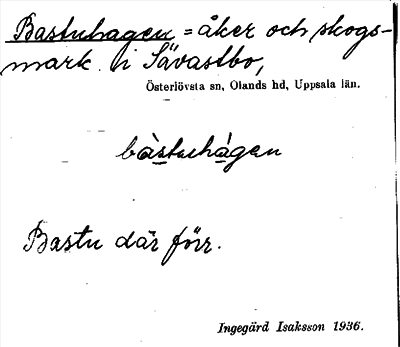 Bastuhagen = åker och skogs-
mark i Sävastbo,
Österlövsta sn, Olands hd, Uppsala län.
bàstuhágen
Bastu där förr.
Ingegärd Isaksson 1936.